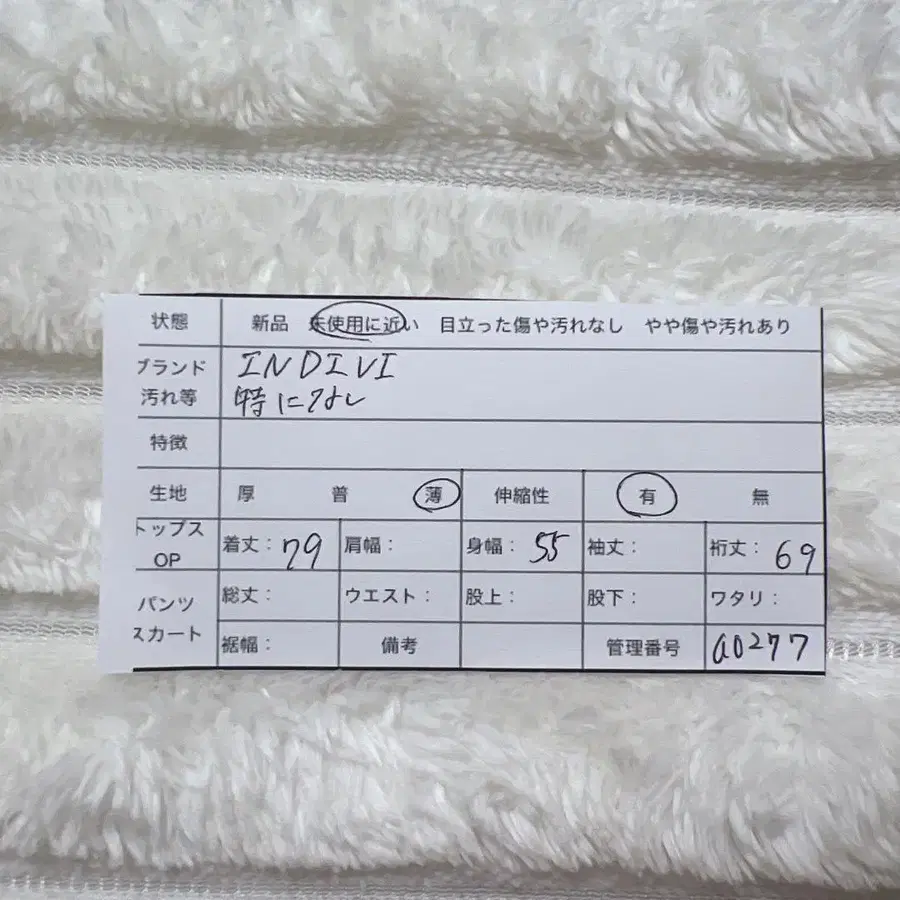 状態 新品 未使用に近い 目立った傷や汚れなし やや傷や汚れあり
ブランド INDIVI
汚れ等 特になし
特徴
生地 厚 普 薄 伸縮性 有 無
トップス OP 着丈: 79 肩幅: 身幅: 55 袖丈: 裄丈: 69
パンツ 総丈: ウエスト: 股上: 股下: ワタリ:
スカート 裾幅: 備考 管理番号 a0277